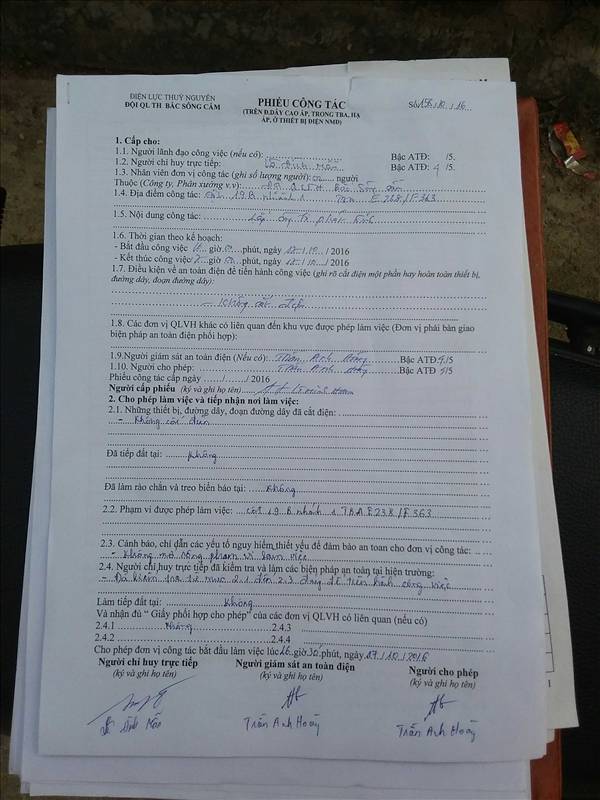 ĐIỆN LỰC THUỶ NGUYÊN
ĐỘI QL TH BẮC SÔNG CẤM
PHIẾU CÔNG TÁC
(TRÊN Đ.DÂY CAO ÁP, TRONG TBA, HẠ
ÁP, Ở THIẾT BỊ ĐIỆN NMĐ)
Số: /10../16...
1. Cấp cho:
1.1. Người lãnh đạo công việc (nếu có): Bậc ATĐ: /5.
1.2. Người chỉ huy trực tiếp: Bậc ATĐ: 4 /5.
1.3. Nhân viên đơn vị công tác (ghi số lượng người): người
Thuộc (Công ty, Phân xưởng v.v): Đội QLTH Bắc Sông Cấm
1.4. Địa điểm công tác: Cột 19.B nhánh 1 TBA E238/F363
1.5. Nội dung công tác:
1.6. Thời gian theo kế hoạch:
- Bắt đầu công việc giờ phút, ngày / 2016
- Kết thúc công việc giờ phút, ngày / 2016
1.7. Điều kiện về an toàn điện để tiến hành công việc (ghi rõ cắt điện một phần hay hoàn toàn thiết bị,
đường dây, đoạn đường dây):
- Không cắt điện
1.8. Các đơn vị QLVH khác có liên quan đến khu vực được phép làm việc (Đơn vị phải bàn giao
biện pháp an toàn điện phối hợp):
1.9.Người giám sát an toàn điện (Nếu có): Trần Anh Hoàng Bậc ATĐ /5
1.10. Người cho phép: Trần Anh Hoàng Bậc ATĐ 5/5
Phiếu công tác cấp ngày ....../....../ 2016
Người cấp phiếu (ký và ghi họ tên)
2. Cho phép làm việc và tiếp nhận nơi làm việc:
2.1. Những thiết bị, đường dây, đoạn đường dây đã cắt điện:
- Không cắt điện
Đã tiếp đất tại: Không
Đã làm rào chắn và treo biển báo tại: Không
2.2. Phạm vi được phép làm việc: Cột 19.B nhánh 1 TBA E238/F363
2.3. Cảnh báo, chỉ dẫn các yếu tố nguy hiểm thiết yếu để đảm bảo an toan cho đơn vị công tác:
- Không mở rộng phạm vi làm việc
2.4. Người chỉ huy trực tiếp đã kiểm tra và làm các biện pháp an toàn tại hiện trường:
- Đã kiểm tra từ mục 2.1 đến 2.3 đúng để tiến hành công việc
Làm tiếp đất tại: Không
Và nhận đủ “ Giấy phối hợp cho phép” của các đơn vị QLVH có liên quan (nếu có)
2.4.1 Không 2.4.3
2.4.2 2.4.4
Cho phép đơn vị công tác bắt đầu làm việc lúc 16 giờ 30 phút, ngày /10 / 2016
Người chỉ huy trực tiếp Người giám sát an toàn điện Người cho phép
(ký và ghi họ tên) (ký và ghi họ tên) (ký và ghi họ tên)
Trần Anh Hoàng Trần Anh Hoàng